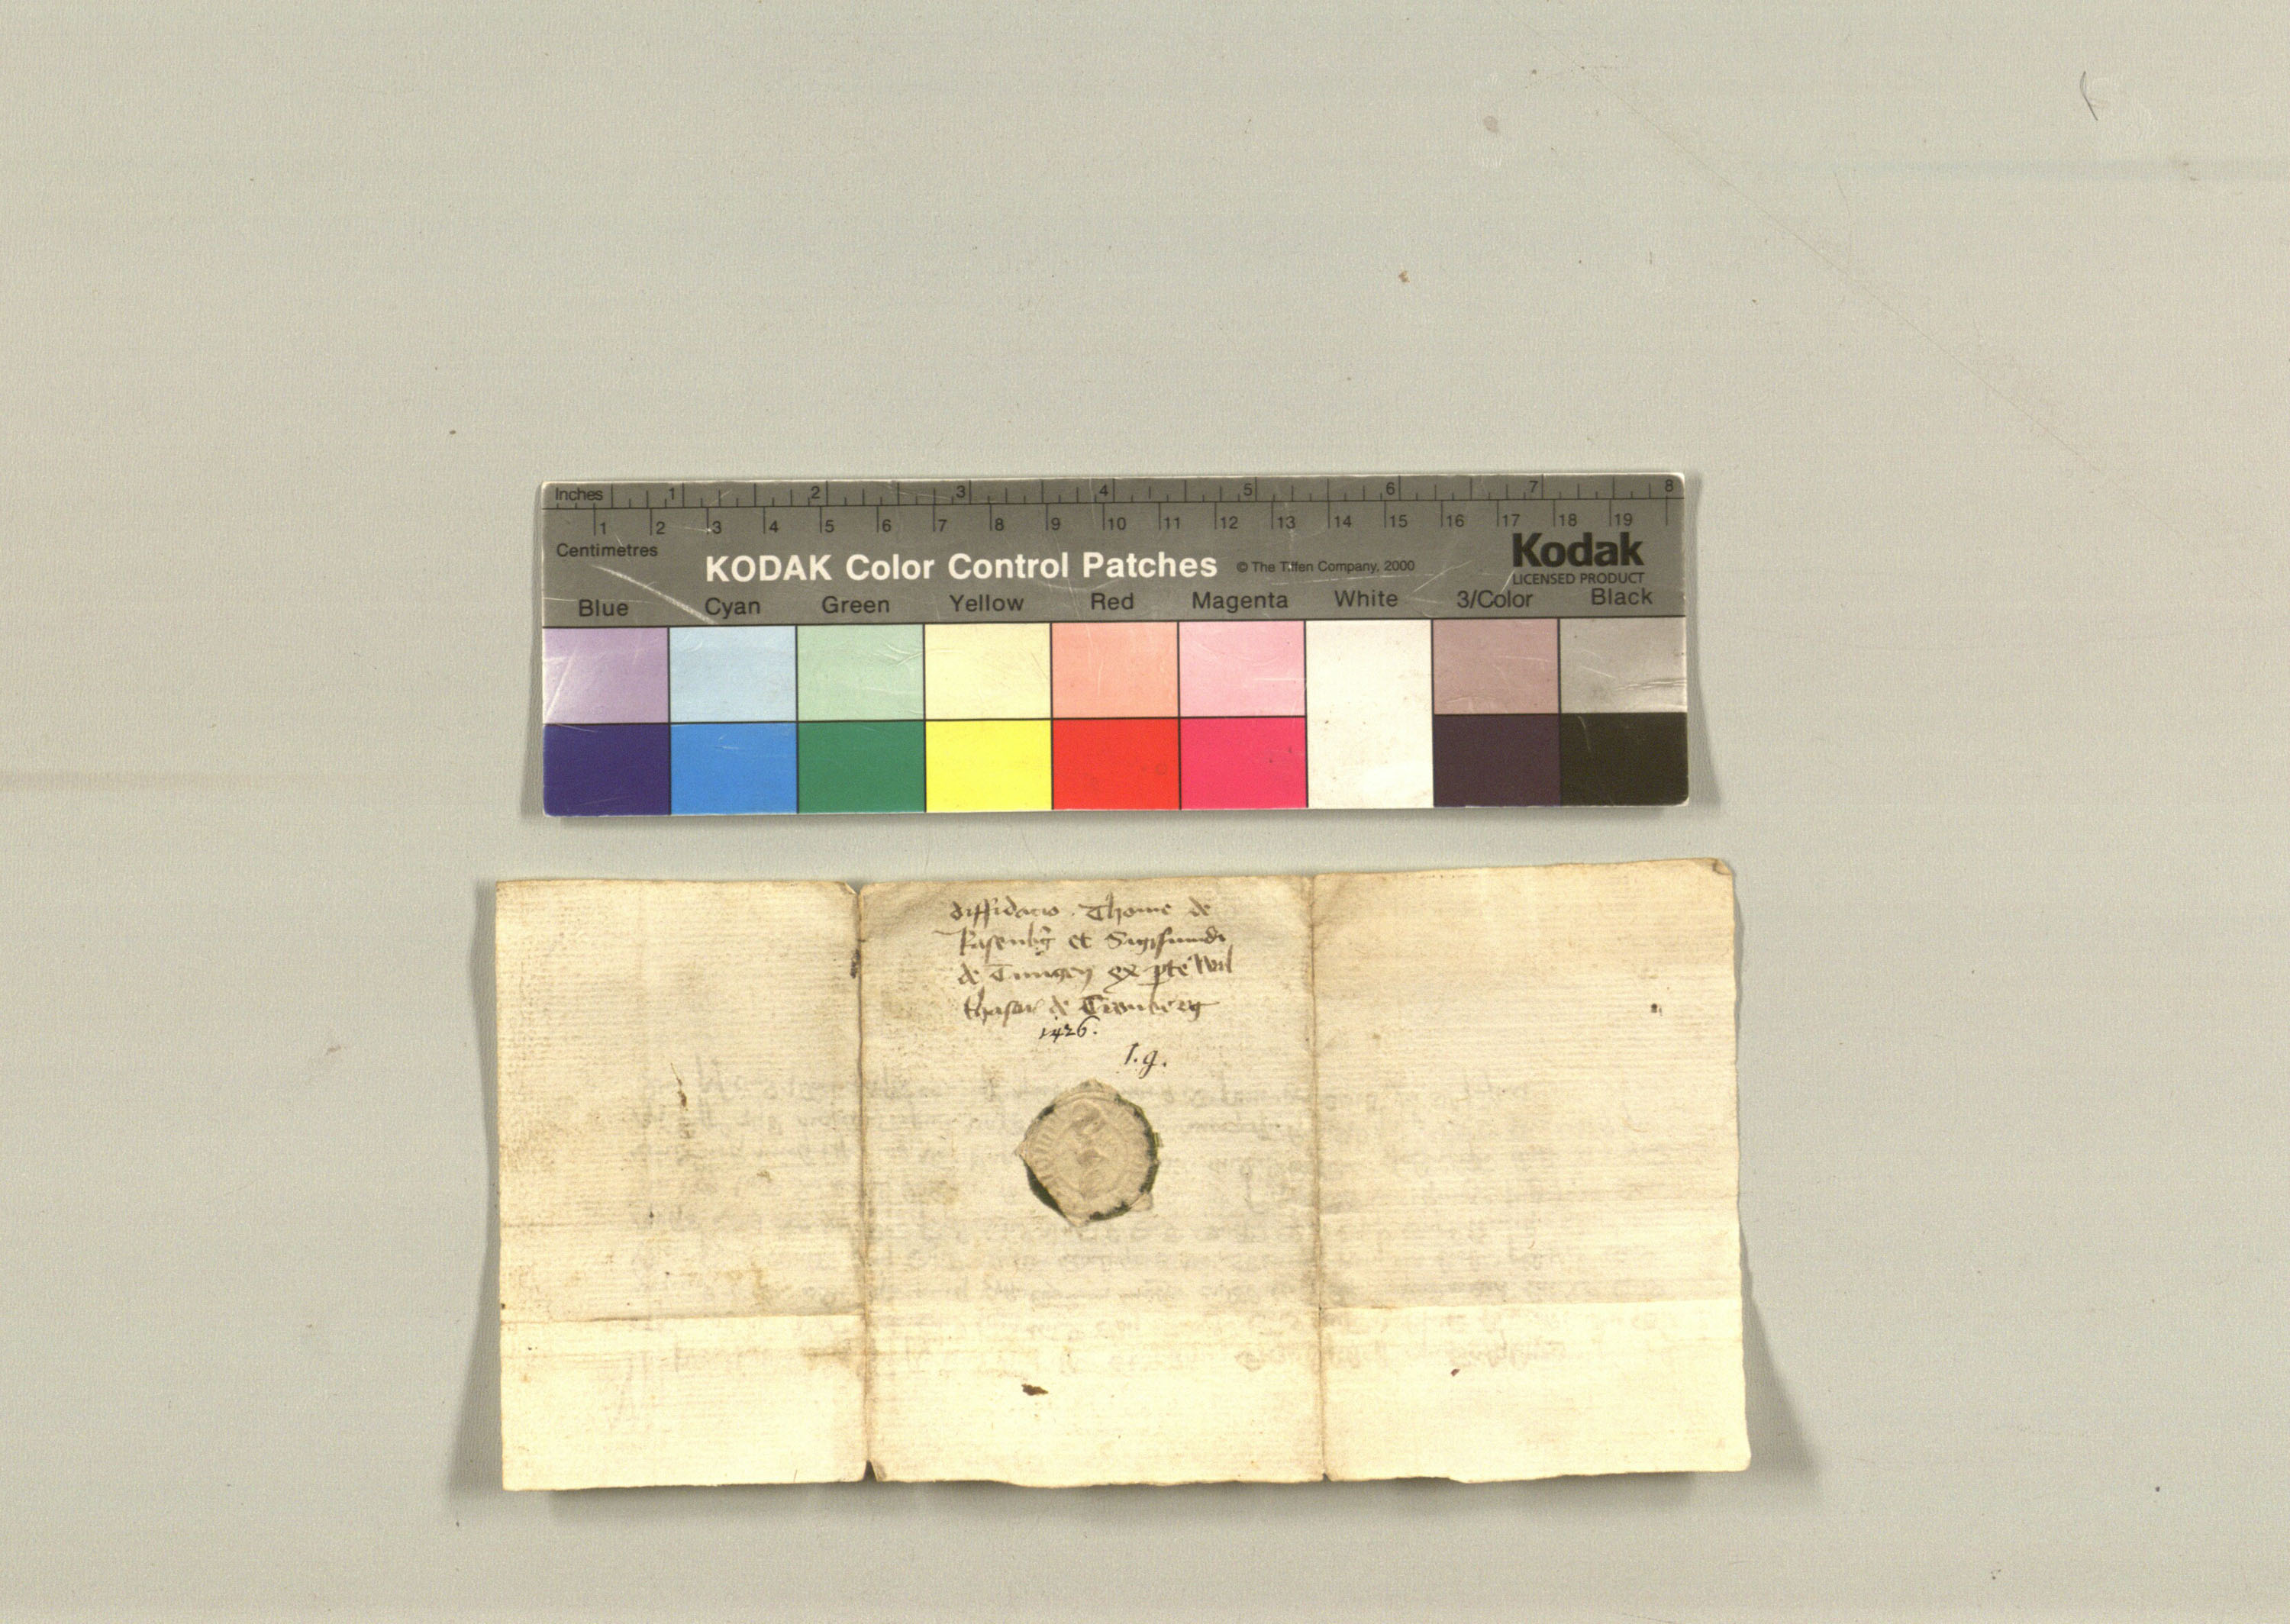 Inches 1 2 3 4 5 6 7 8
1 2 3 4 5 6 7 8 9 10 11 12 13 14 15 16 17 18 19
Centimetres
KODAK Color Control Patches © The Tiffen Company, 2000
Kodak
LICENSED PRODUCT
Blue Cyan Green Yellow Red Magenta White 3/Color Black
diffidacio . Thome de
et Sigismundi
de Tungen ex pte Wal
thasar de Tronberg
1426.
I. g.